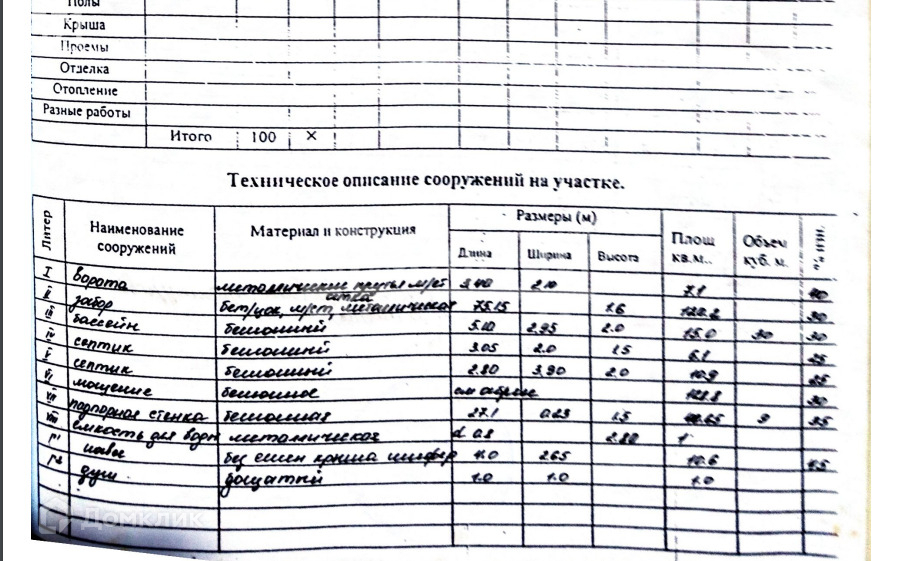 Полы
Крыша
Проемы
Отделка
Отопление
Разные работы
Итого 100 ×
Техническое описание сооружений на участке.
Литер Наименование сооружений Материал и конструкция Размеры (м) Длина Ширина Высота Площ кв.м.. Объем куб. м.
I ворота металлические прутья м/ст сетка 2.10 7.1
II забор бет/цок, м/ст, металлическая 75.15 1.6 30
III бассейн бетонный 5.10 2.95 2.0 15.0 30 30
IV септик бетонный 3.05 2.0 1.5 6.1 25
V септик бетонный 2.80 3.90 2.0 10.9 25
VI мощение бетонное 30
VII подпорная стенка бетонная 27.1 1.5
VIII емкость для воды металлическая d 0.8 2.80
Г1 навес без стен крыша шифер 4.0 2.65 10.6
Г2 душ дощатый 1.0 1.0 1.0
Домклик